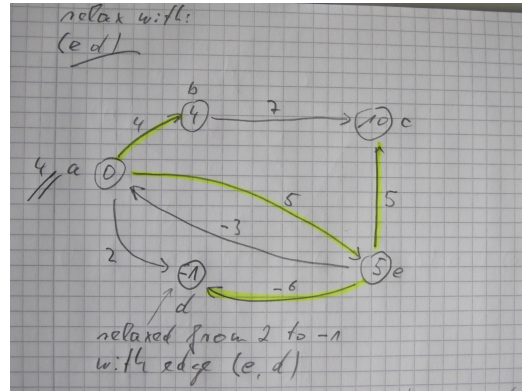 relax with:
(e,d)
b
4
4
7
10
c
4
a
0
5
5
-3
2
-1
5
e
-6
d
relaxed from 2 to -1
with edge (e,d)